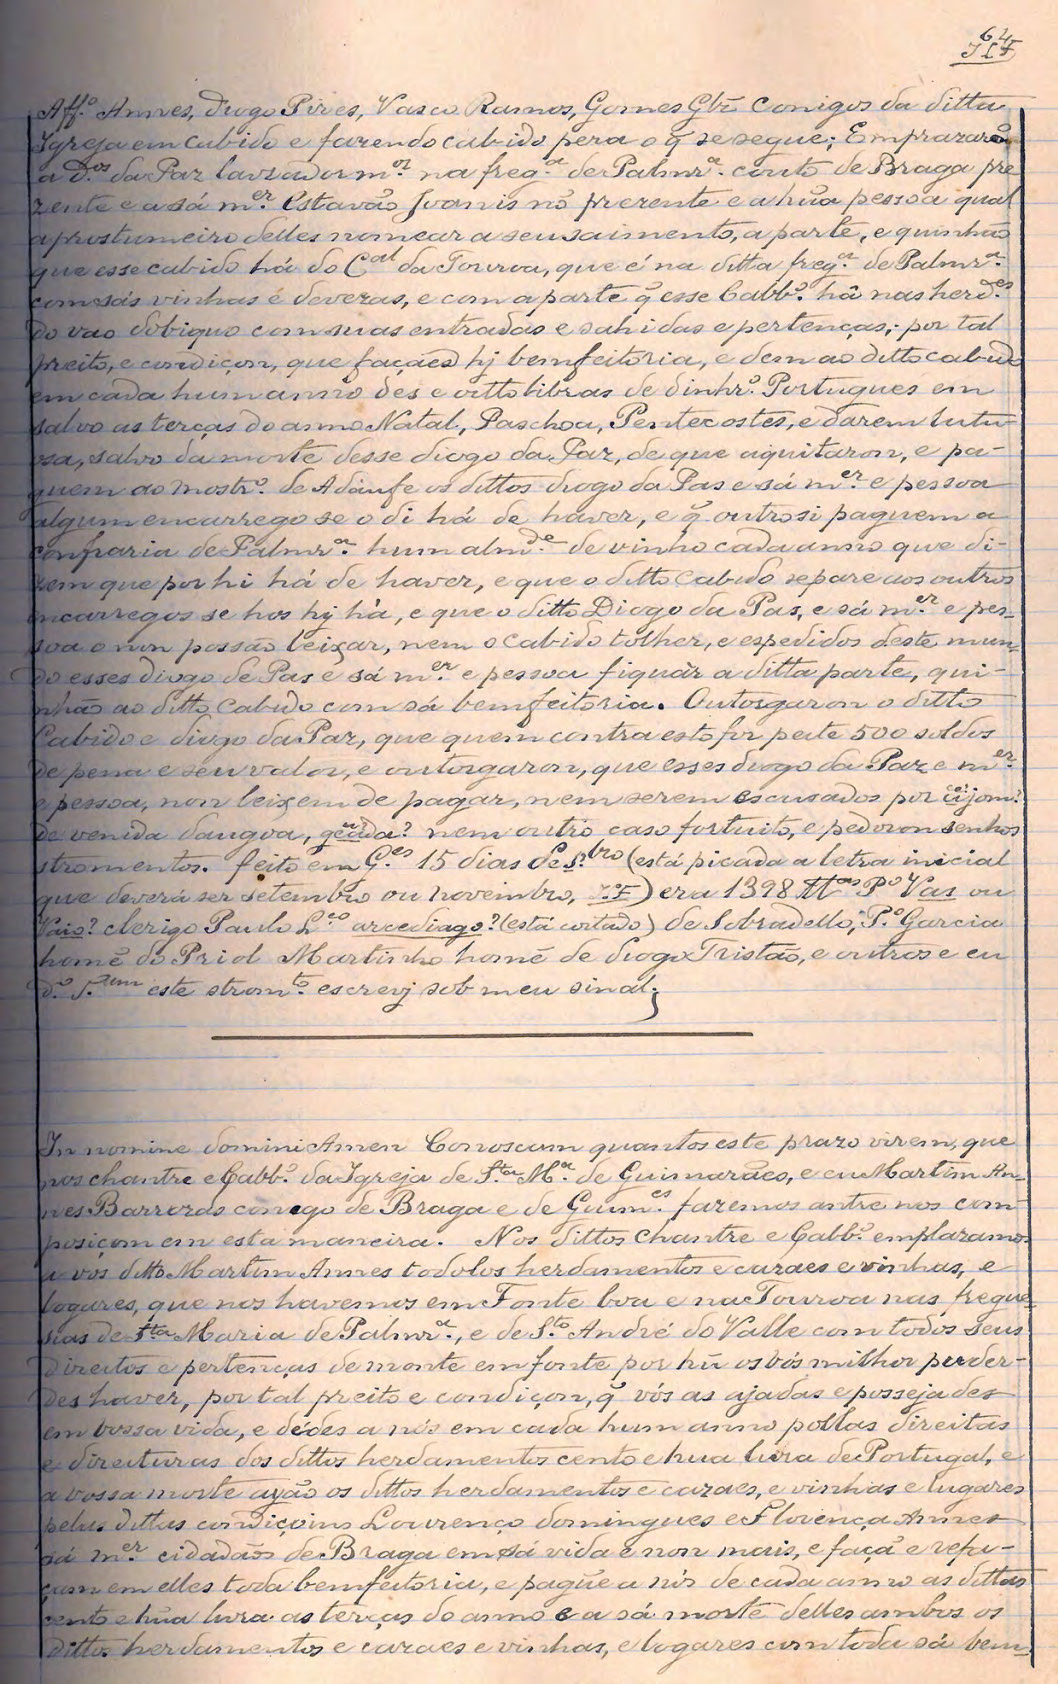 64
Aff.º Annes, Diogo Pires, Vasco Ramos, Gomes Glz̃ conigos da ditta
Igreja em cabido e fazendo cabido pera o q̃ se segue; Emprazarõ
a D.ᵒˢ da Paz lavrador m.ᵒʳ na freg.ᵃ de Palmr.ᵃ couto de Braga pre
zente e a sá m.ᵉʳ Estavão Joanis nõ prezente e a hũa pessoa qual
a prostumeiro delles nomear a seu saimento, a parte, e quinhão
que esse cabido há do C.ᵃˡ da Touroa, que é na ditta freg.ᵃ de Palmr.ᵃ
com sás vinhas e devezas, e com a parte q̃ esse Cabb.º há nas herd.ᵉˢ
do vao dobiquo com suas entradas e sahidas e pertenças; por tal
preito, e condiçon, que façães hj bemfeitoria, e dem ao ditto cabido
em cada hum anno des e oitto libras de dinhr.º Portugues em
salvo as terças do anno Natal, Paschoa, Pentecostes, e darem lutu-
osa, salvo da morte desse diogo da Paz, de que aquitaron, e pa-
guem ao mostr.º de Adaufe os dittos diogo da Pas e sá m.ᵉʳ e pessoa
algum encarrego se o di há de haver, e q̃ outrosi paguem a
confraria de Palmr.ᵃ hum almd.ᵉ de vinho cada anno que di-
zem que por hi há de haver, e que o ditto cabido se pare aos outros
encarregos se hos hy há, e que o ditto Diogo da Pas, e sá m.ᵉʳ e pes-
soa o non possão leixar, nem o cabido tolher, e espedidos deste mun-
do esses diogo de Pas e sá m.ᵉʳ e pessoa fiquar a ditta parte, qui-
nhão ao ditto cabido com sá bemfeitoria. Outorgaron o ditto
Cabido e diogo da Paz, que quem contra esto for peite 500 soldos
de pena e seu valor, e outorgaron, que esses diogo da Paz e m.ᵉʳ
e pessoa, non leixem de pagar, nem serem escusados por cijom?
de venida daugoa, geada? nem outro caso fortuito, e pedoron senhos
stromentos. feito em G.ᵉˢ 15 dias de s.ᵇʳᵒ (está picada a letra inicial
que deverá ser setembro ou novembro, J.F) era 1398 tt.ᵃˢ P.º Vas ou
Vaio? clerigo Paulo L.ᶜᵒ arcediago? (está cortado) de Sobradello, P.º Garcia
homẽ do Priol Martinho homẽ de diogo Tristão, e outros e eu
este strom.ᵗᵒ escrevj sob meu sinal;
In nomine domini Amen Conoscam quantos este prazo virem, que
nos chantre e Cabb.º da Igreja de S.ᵗᵃ M.ᵃ de Guimarães, e eu Martim An-
nes Barrozas conego de Braga e de Guim.ᵉˢ fazemos antre nos com
posiçom em esta maneira. Nos dittos Chantre e Cabb.º emplazamos
a vós ditto Martim Annes todolos herdamentos e cazaes e vinhas, e
logares, que nos havemos em Fonte boa e na Touroa nas fregue-
sias de S.ᵗᵃ Maria de Palmr.ᵃ, e de S.ᵗᵒ André do Valle com todos seus
direitos e pertenças de monte em fonte por hũ os vós milhor poder-
des haver, por tal preito e condiçon, q̃ vós as ajades e possejades
em vossa vida, e dédes a nós em cada hum anno pollas direitas
e direituras dos dittos herdamentos cento e hua livra de Portugal, e
a vossa morte ajão os dittos herdamentos e cazaes, e vinhas e lugares
pelas dittas condiçoins Lourenço domingues e Florença Annes
sá m.ᵉʳ cidadãos de Braga em sá vida e non mais, e façã e refa-
çam em elles toda bemfeitoria, e pagũe a nós de cada anno as dittas
cento e hũa livra as terças do anno e a sá morte delles ambos os
dittos herdamentos e cazaes e vinhas, e logares com toda sá bem-